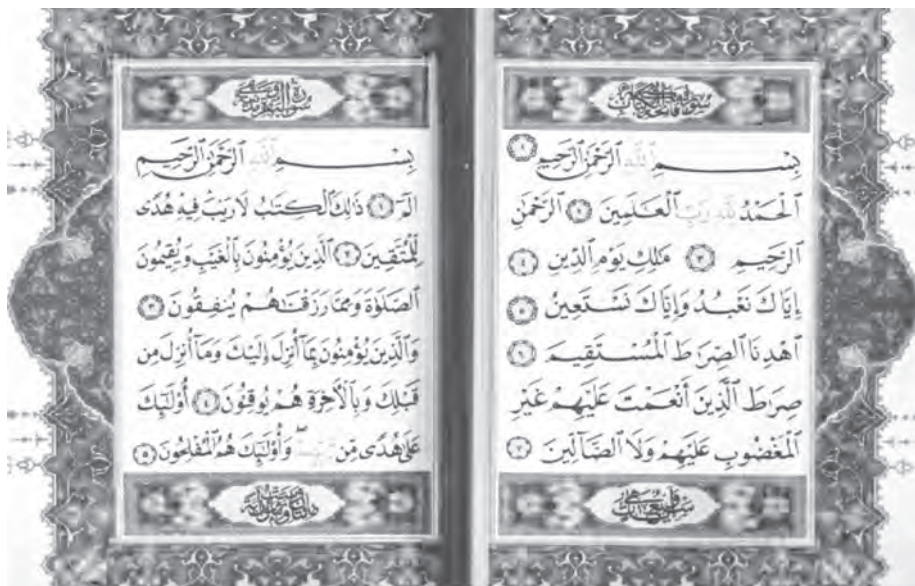 بِسْمِ ٱللَّهِ ٱلرَّحْمَٰنِ ٱلرَّحِيمِ ١
ٱلْحَمْدُ لِلَّهِ رَبِّ ٱلْعَٰلَمِينَ ٢ ٱلرَّحْمَٰنِ
ٱلرَّحِيمِ ٣ مَٰلِكِ يَوْمِ ٱلدِّينِ ٤
إِيَّاكَ نَعْبُدُ وَإِيَّاكَ نَسْتَعِينُ ٥
ٱهْدِنَا ٱلصِّرَٰطَ ٱلْمُسْتَقِيمَ ٦
صِرَٰطَ ٱلَّذِينَ أَنْعَمْتَ عَلَيْهِمْ غَيْرِ
ٱلْمَغْضُوبِ عَلَيْهِمْ وَلَا ٱلضَّآلِّينَ ٧
بِسْمِ ٱللَّهِ ٱلرَّحْمَٰنِ ٱلرَّحِيمِ
الٓمٓ ١ ذَٰلِكَ ٱلْكِتَٰبُ لَا رَيْبَ فِيهِ هُدًى
لِّلْمُتَّقِينَ ٢ ٱلَّذِينَ يُؤْمِنُونَ بِٱلْغَيْبِ وَيُقِيمُونَ
ٱلصَّلَوٰةَ وَمِمَّا رَزَقْنَٰهُمْ يُنفِقُونَ ٣
وَٱلَّذِينَ يُؤْمِنُونَ بِمَآ أُنزِلَ إِلَيْكَ وَمَآ أُنزِلَ مِن
قَبْلِكَ وَبِٱلْأَخِرَةِ هُمْ يُوقِنُونَ ٤ أُو۟لَٰٓئِكَ
عَلَىٰ هُدًى مِّن وَأُو۟لَٰٓئِكَ هُمُ ٱلْمُفْلِحُونَ ٥